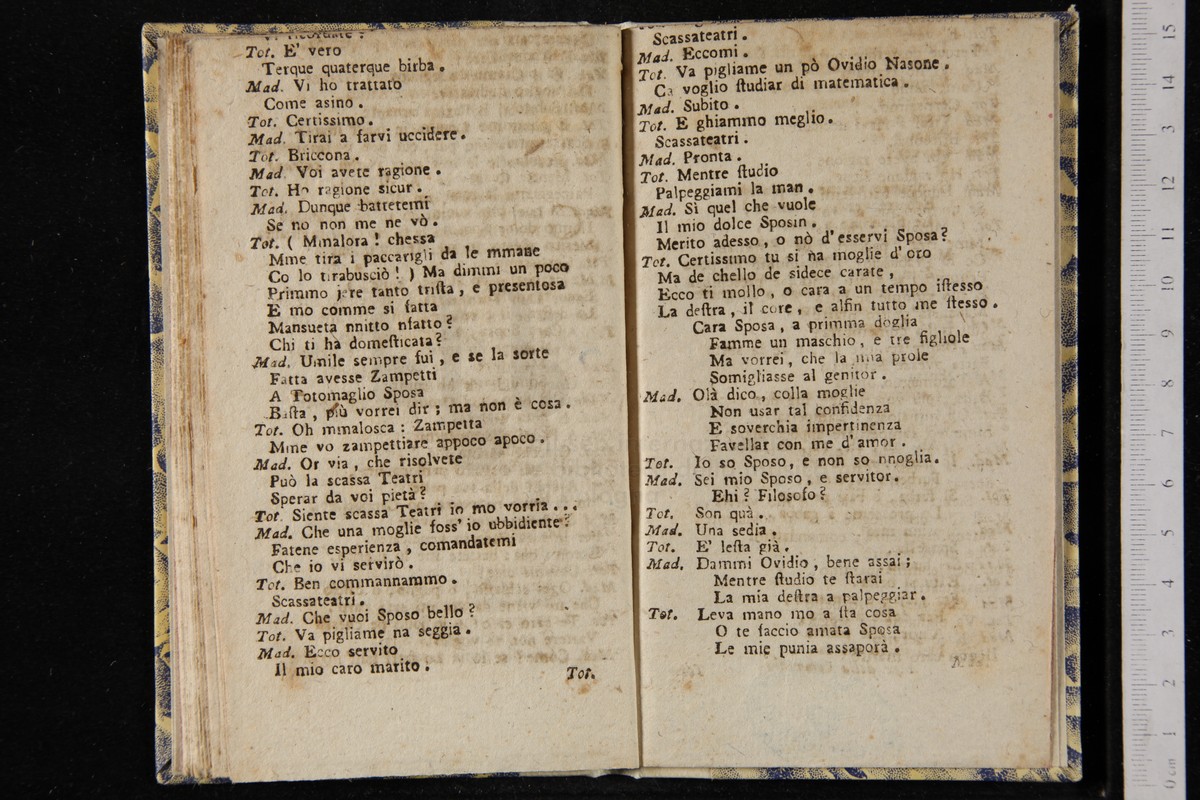 Tot. E' vero
Terque quaterque birba .
Mad. Vi ho trattato
Come asino .
Tot. Certissimo .
Mad. Tirai a farvi uccidere .
Tot. Briccona .
Mad. Voi avete ragione .
Tot. Ho ragione sicur .
Mad. Dunque battetemi
Se no non me ne vò .
Tot. ( Mmalora ! chessa
Mme tira i paccarigli da le mmane
Co lo tirabusciò ! ) Ma dimmi un poco
Primmo jere tanto trista , e presentosa
E mo comme si fatta
Mansueta nnitto nfatto ?
Chi ti ha domesticata ?
Mad. Umile sempre fui , e se la sorte
Fatta avesse Zampetti
A Totomaglio Sposa
Basta , più vorrei dir ; ma non è cosa .
Tot. Oh mmalosca : Zampetta
Mme vo zampettiare appoco apoco .
Mad. Or via , che risolvete
Può la scassa Teatri
Sperar da voi pietà ?
Tot. Siente scassa Teatri io mo vorria . . .
Mad. Che una moglie foss' io ubbidiente ?
Fatene esperienza , comandatemi
Che io vi servirò .
Tot. Ben commannammo .
Scassateatri .
Mad. Che vuoi Sposo bello ?
Tot. Va pigliame na seggia .
Mad. Ecco servito
Il mio caro marito .
Tot.
Scassateatri .
Mad. Eccomi .
Tot. Va pigliame un pò Ovidio Nasone .
Ca voglio studiar di matematica .
Mad. Subito .
Tot. E ghiammo meglio .
Scassateatri .
Mad. Pronta .
Tot. Mentre studio
Palpeggiami la man .
Mad. Sì quel che vuole
Il mio dolce Sposin .
Merito adesso , o nò d' esservi Sposa ?
Tot. Certissimo tu si na moglie d' oro
Ma de chello de sidece carate ,
Ecco ti mollo , o cara a un tempo istesso
La destra , il core , e alfin tutto me stesso .
Cara Sposa , a primma doglia
Famme un maschio , e tre figliole
Ma vorrei , che la mia prole
Somigliasse al genitor .
Mad. Olà dico , colla moglie
Non usar tal confidenza
E soverchia impertinenza
Favellar con me d' amor .
Tot. Io so Sposo , e non so nnoglia .
Mad. Sei mio Sposo , e servitor .
Ehi ? Filosofo ?
Tot. Son quà .
Mad. Una sedia .
Tot. E' lesta già .
Mad. Dammi Ovidio , bene assai ;
Mentre studio te starai
La mia destra a palpeggiar .
Tot. Leva mano mo a sta cosa
O te faccio amata Sposa
Le mie punia assaporà .